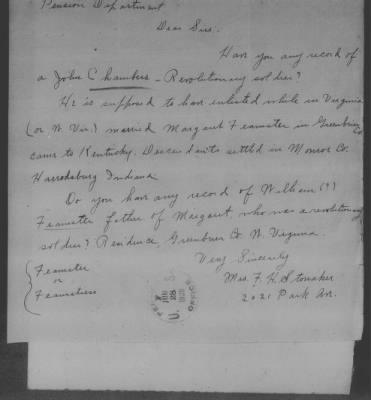 Pension Department
Dear Sirs.
Have you any record of
a John Chambers - Revolutionary soldier?
He is supposed to have enlisted while in Virginia
(or W. Vir.) married Margaret Feamster in Greenbrier Co
came to Kentucky. Descendants settled in Monroe Co.
Harrodsburg Indiana
Do you have any record of William (?)
Feamster father of Margaret, who was a revolutionary
soldier? Residence, Greenbrier Co W. Virginia.
Very Sincerely
Mrs. F. H. Stonaker
2021 Park Av.
Feamster
or
OFFICE
28